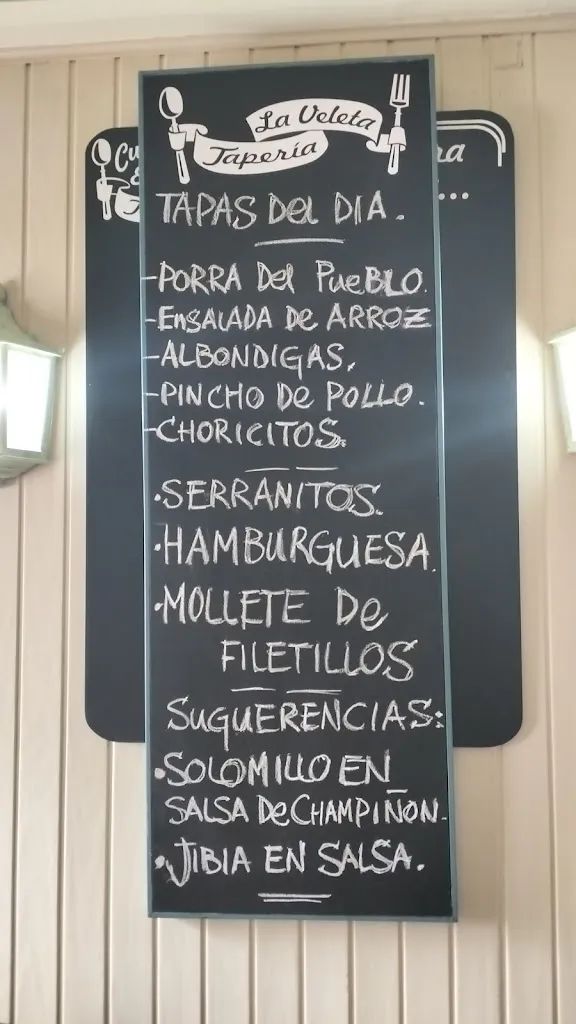 La Veleta
Tapería
TAPAS Del DIA.
-PORRA Del PueBLO.
-EnSALADA De ARROZ
-ALBONDIGAS.
-PINCHO De POLLO.
-CHORICITOS.
·SERRANITOS.
·HAMBURGUESA.
·MOLLETE De
FILETILLOS
SuGUERENCIAS:
·SOLOMILLO EN
SALSA De CHAMPIÑON.
·JIBIA EN SALSA.